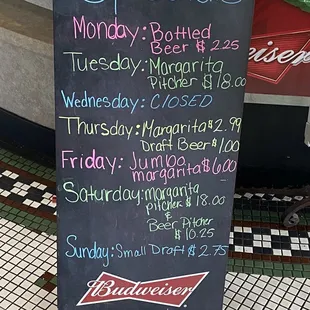 Monday: Bottled
Beer $ 2.25
Tuesday: Margarita
Pitcher $ 18.00
Wednesday: ClOSED
Thursday: Margarita $ 2.99
Draft Beer $ 1.00
Friday: Jumbo
margarita $ 6.00
Saturday: margarita
Pitcher $ 18.00
&
Beer Pitcher
$ 10.25
Sunday: Small Draft $ 2.75
Budweiser
eiser